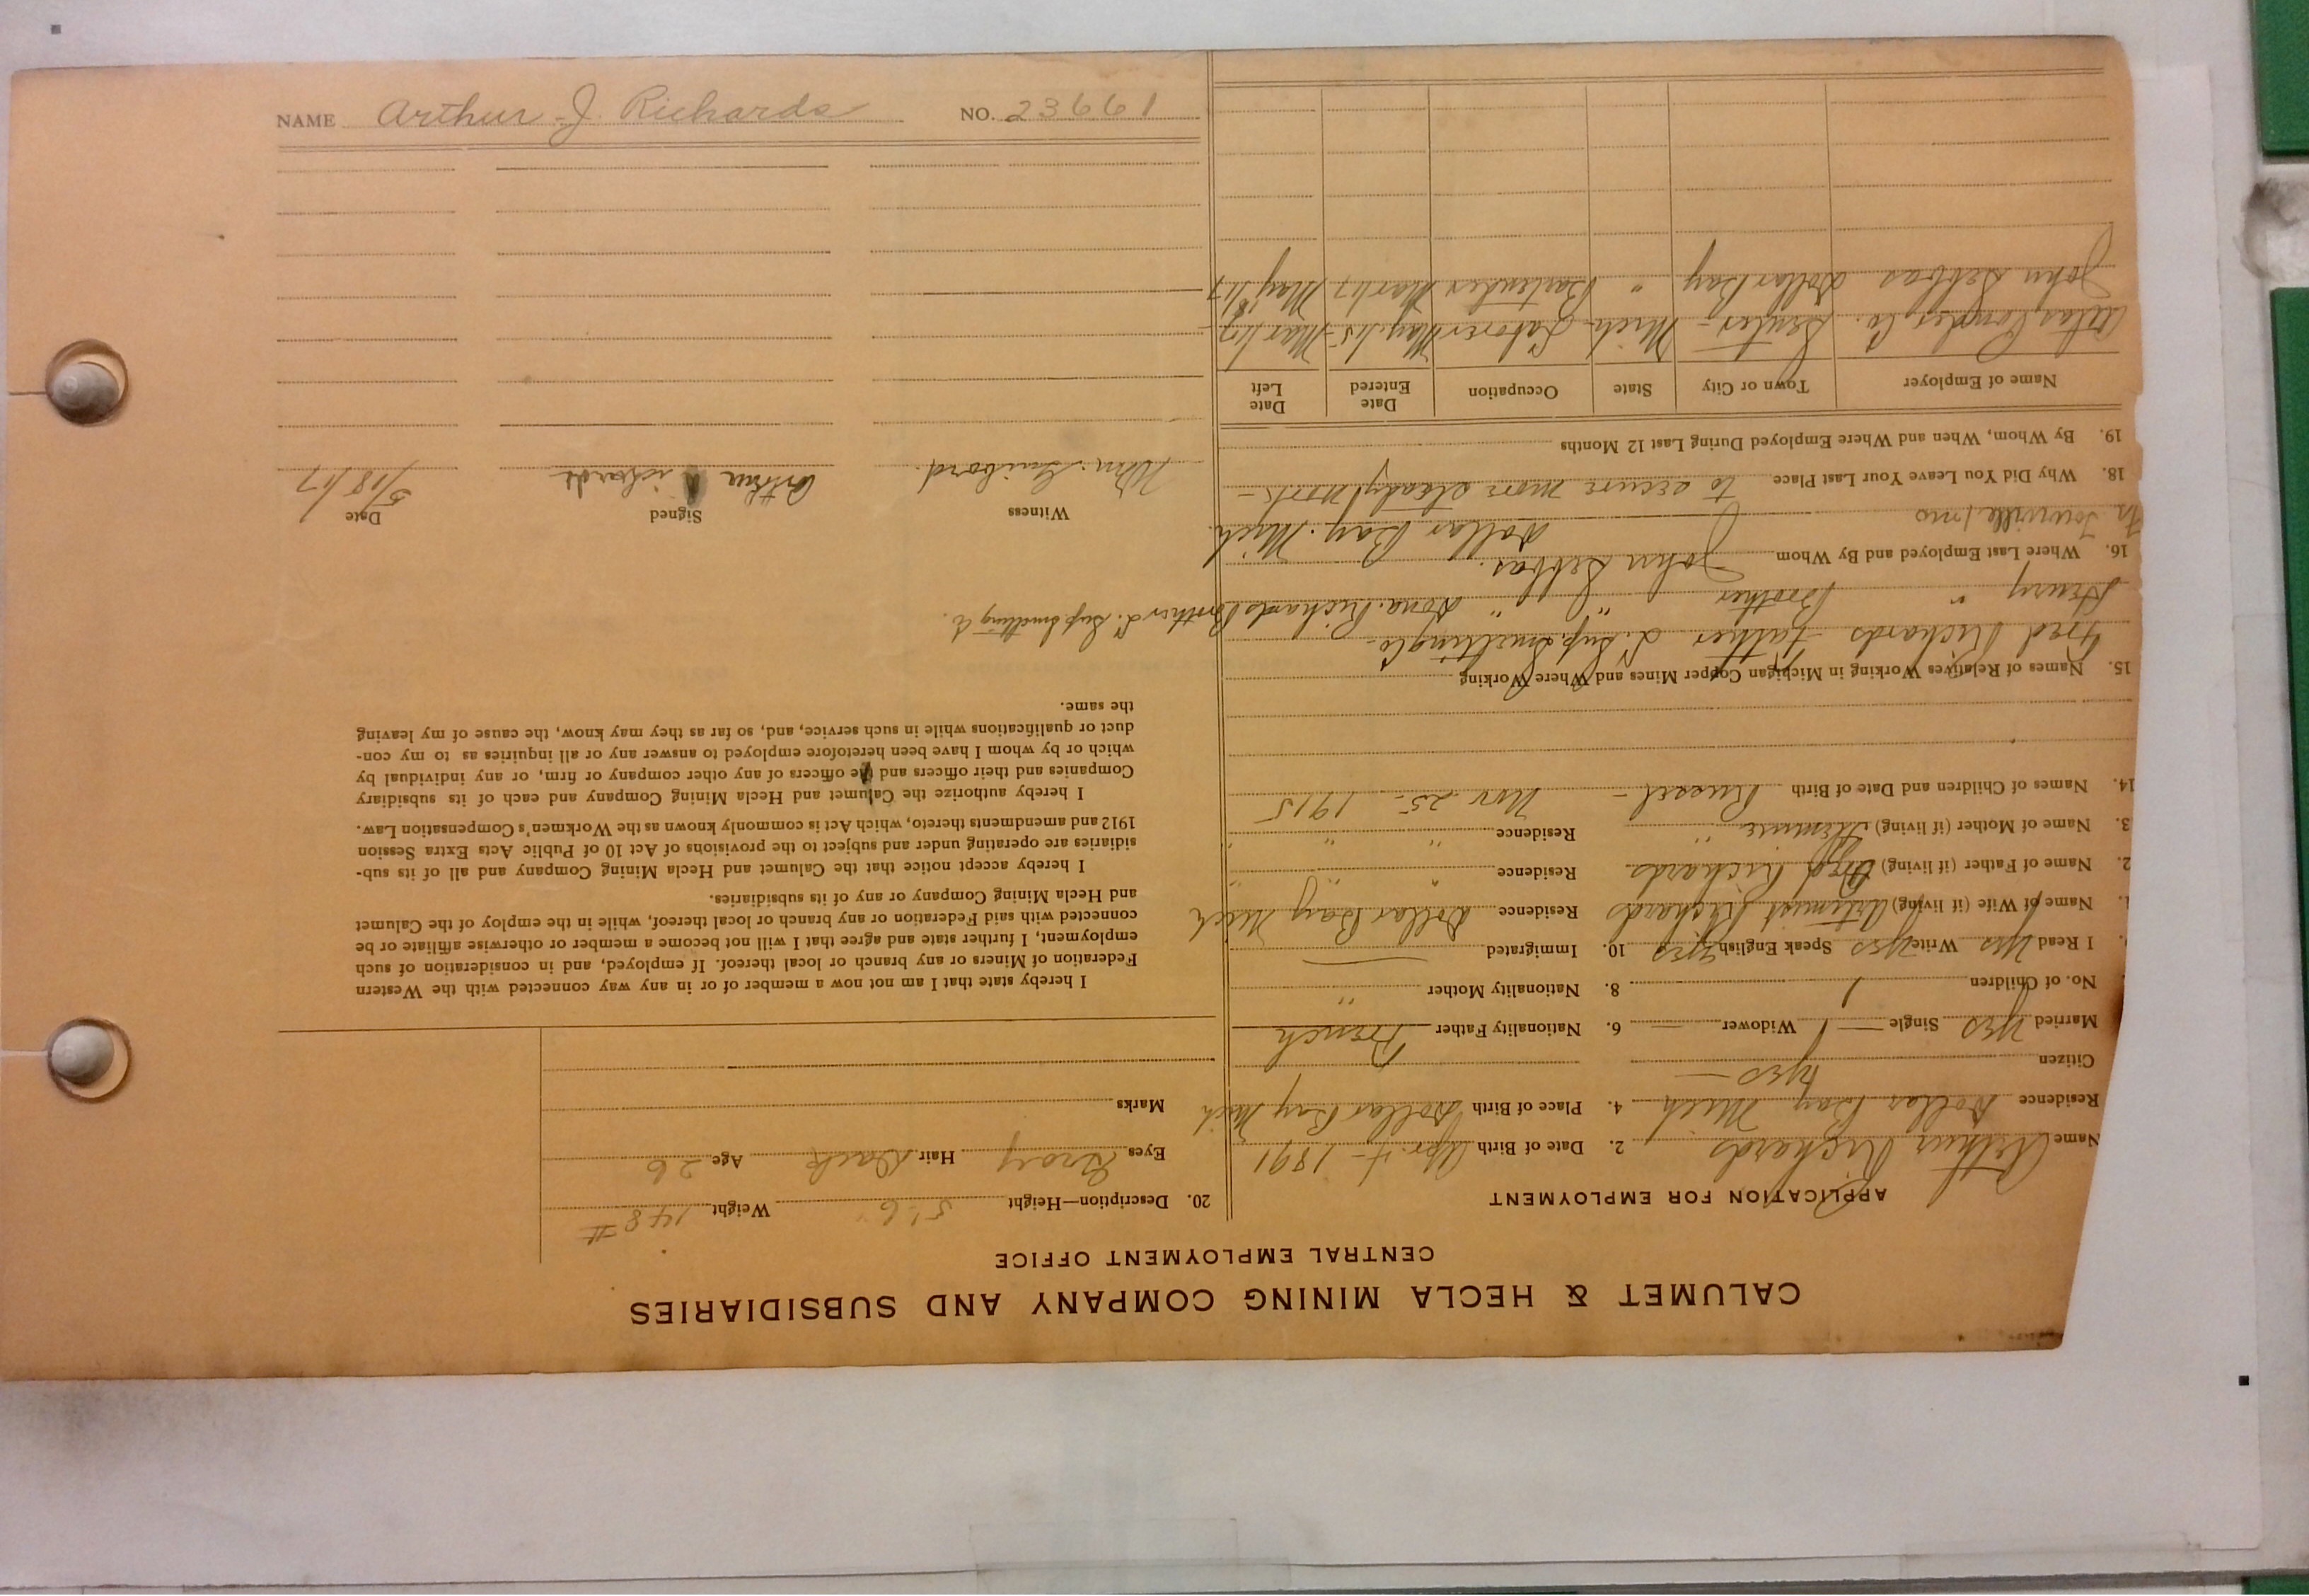 NAME Arthur J. Richards NO. 23661
CALUMET & HECLA MINING COMPANY AND SUBSIDIARIES
CENTRAL EMPLOYMENT OFFICE
APPLICATION FOR EMPLOYMENT
Name Arthur Richards 2. Date of Birth Apr. 4 - 1891
Residence Dollar Bay Mich 4. Place of Birth Dollar Bay Mich
Citizen yes -
Married yes Single — Widower — 6. Nationality Father French
No. of Children 1 8. Nationality Mother "
I Read yes Write yes Speak English yes 10. Immigrated —
Name of Wife (if living) Artemist Richards Residence Dollar Bay Mich
2. Name of Father (if living) Fred Richards. Residence " " "
3. Name of Mother (if living) " Residence " " "
14. Names of Children and Date of Birth Russel - Nov 25 - 1915
15. Names of Relatives Working in Michigan Copper Mines and Where Working
Fred Richards Father L. Sup. Smelting Co-
Henry " Brother " " Dona. Richards Brother L. Sup Smelting Co.
16. Where Last Employed and By Whom John
Dollar Bay. Mich.
18. Why Did You Leave Your Last Place to secure more steady work -
19. By Whom, When and Where Employed During Last 12 Months
Name of Employer Town or City State Occupation Date Entered Date Left
Atlas Powder Co. Senter - Mich - Laborer May 15 - Mar 17 -
John Dollar Bay " Bartender Mar 17 May 17
20. Description—Height 5'.6" Weight 148 #
Eyes Gray Hair Dark Age 26
Marks
I hereby state that I am not now a member of or in any way connected with the Western
Federation of Miners or any branch or local thereof. If employed, and in consideration of such
employment, I further state and agree that I will not become a member or otherwise affiliate or be
connected with said Federation or any branch or local thereof, while in the employ of the Calumet
and Hecla Mining Company or any of its subsidiaries.
I hereby accept notice that the Calumet and Hecla Mining Company and all of its sub-
sidiaries are operating under and subject to the provisions of Act 10 of Public Acts Extra Session
1912 and amendments thereto, which Act is commonly known as the Workmen's Compensation Law.
I hereby authorize the Calumet and Hecla Mining Company and each of its subsidiary
Companies and their officers and the officers of any other company or firm, or any individual by
which or by whom I have been heretofore employed to answer any or all inquiries as to my con-
duct or qualifications while in such service, and, so far as they may know, the cause of my leaving
the same.
Witness Signed Date
Wm. Guibord. Arthur Richards 5/18/17